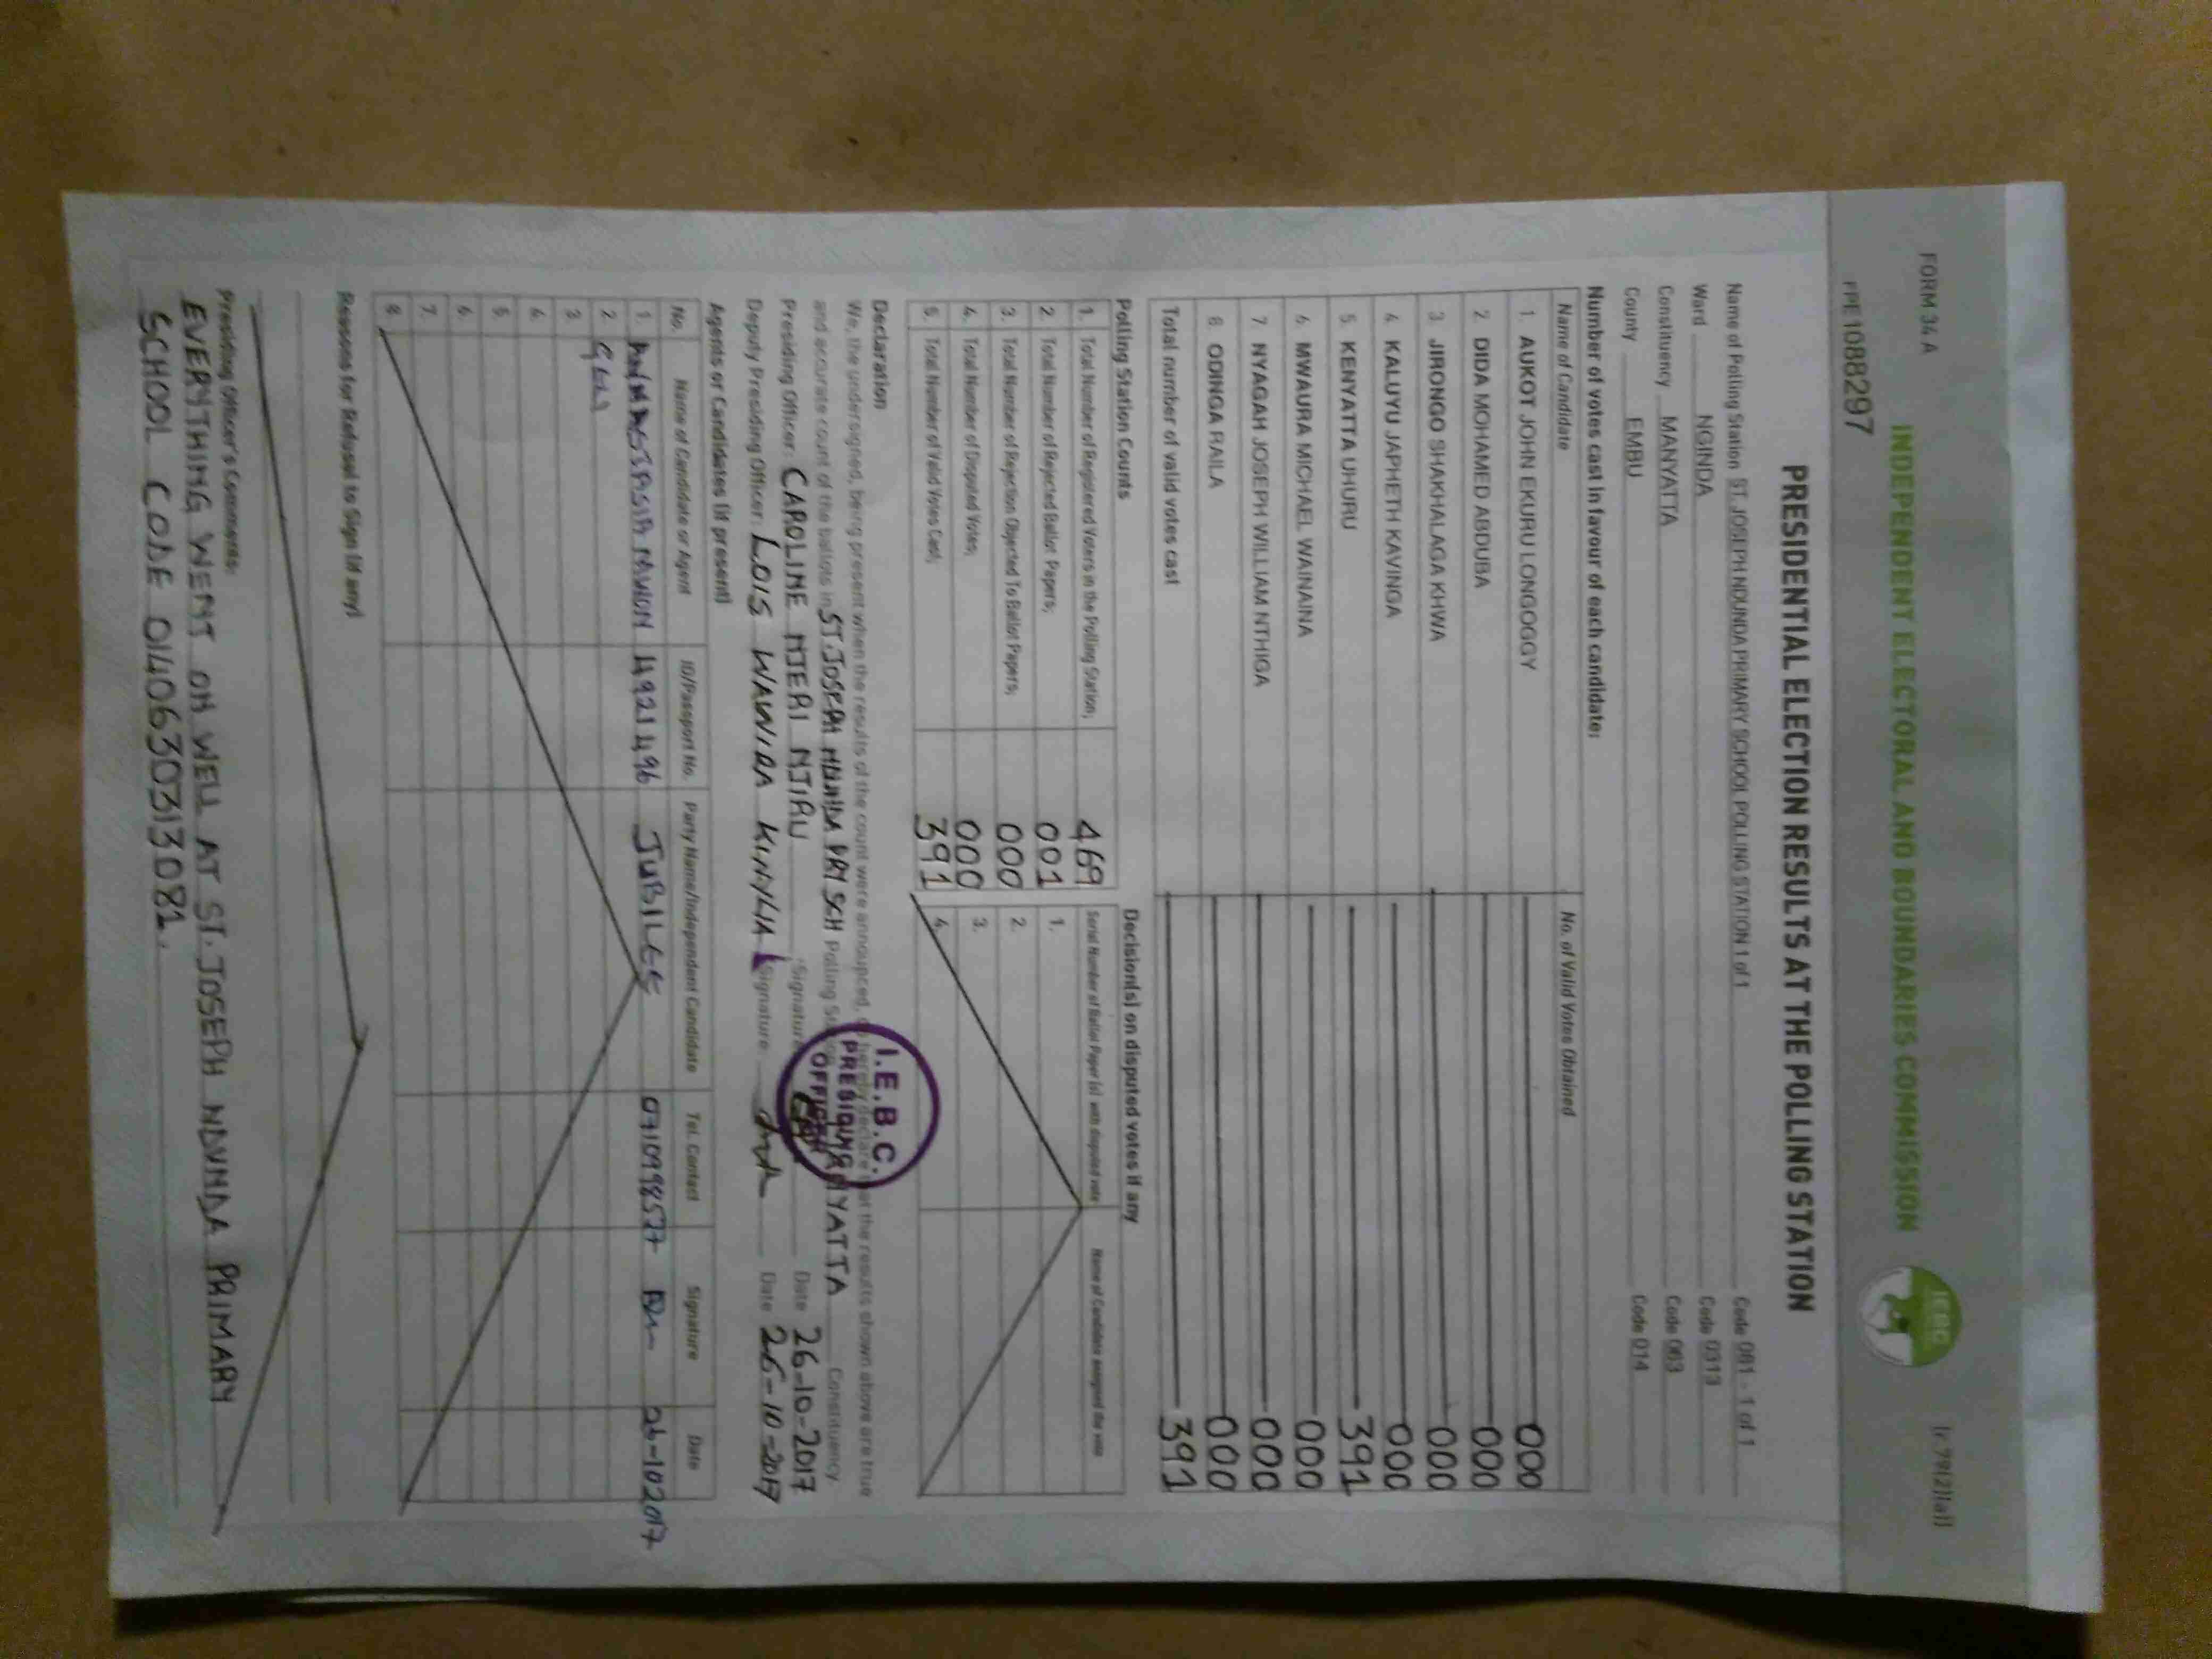 FORM 34 A
(r.79(2)(a))
INDEPENDENT ELECTORAL AND BOUNDARIES COMMISSION
IEBC
PPE1088297
PRESIDENTIAL ELECTION RESULTS AT THE POLLING STATION
Name of Polling Station ST. JOSEPH NDUNDA PRIMARY SCHOOL POLLING STATION 1 of 1 Code 081 - 1 of 1
Ward NGINDA Code 0313
Constituency MANYATTA Code 063
County EMBU Code 014
Number of votes cast in favour of each candidate:
Name of Candidate No. of Valid Votes Obtained
1. AUKOT JOHN EKURU LONGOGGY 000
2. DIDA MOHAMED ABDUBA 000
3. JIRONGO SHAKHALAGA KHWA 000
4. KALUYU JAPHETH KAVINGA 000
5. KENYATTA UHURU 391
6. MWAURA MICHAEL WAINAINA 000
7. NYAGAH JOSEPH WILLIAM NTHIGA 000
8. ODINGA RAILA 000
Total number of valid votes cast 391
Polling Station Counts Decision(s) on disputed votes if any
1. Total Number of Registered Voters in the Polling Station; 469 Serial Number of Ballot Paper (s) with disputed vote Name of Candidate assigned the vote
2. Total Number of Rejected Ballot Papers; 001 1.
3. Total Number of Rejection Objected To Ballot Papers; 000 2.
4. Total Number of Disputed Votes; 000 3.
5. Total Number of Valid Votes Cast; 391 4.
Declaration
We, the undersigned, being present when the results of the count were announced, do hereby declare that the results shown above are true
and accurate count of the ballots in ST. JOSEPH NDUNDA PRY SCH Polling Station MANYATTA Constituency
Presiding Officer: CAROLINE NJERI NJIRU Signature Date 26-10-2017
Deputy Presiding Officer: LOIS WAWIRA KINYUA Signature Date 26-10-2017
I.E.B.C.
PRESIDING
OFFICER
Agents or Candidates (if present)
No. Name of Candidate or Agent ID/Passport No. Party Name/Independent Candidate Tel. Contact Signature Date
1. 49214496 JUBILEE 0710998577 26-102017
2.
3.
4.
5.
6.
7.
8.
Reasons for Refusal to Sign (if any)
Presiding Officer's Comments:
EVERYTHING WENT ON WELL AT ST. JOSEPH NDUNDA PRIMARY
SCHOOL CODE 014063031308 1.